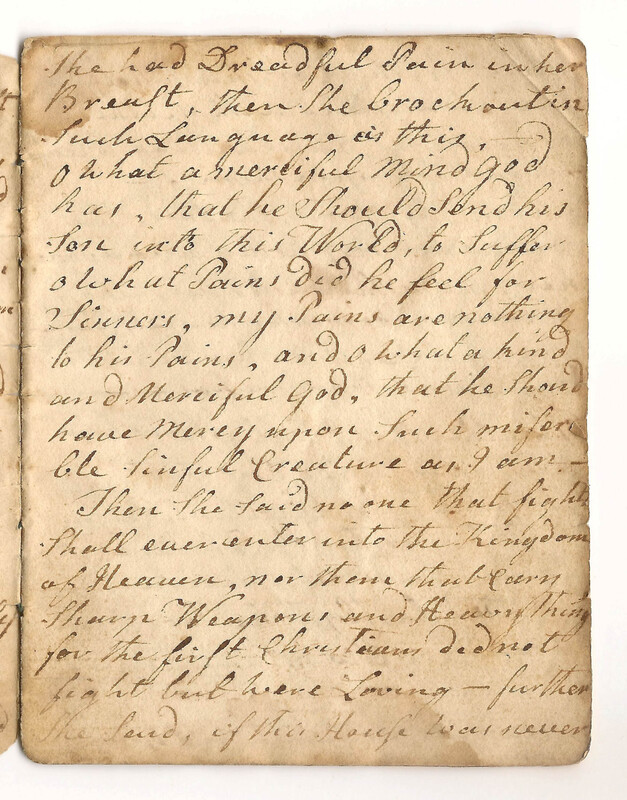 She had Dreadful Pain in her
Breast, then She brock out in
Such Language as this, —
O what a merciful Mind God
has, that he Should Send his
Son into this World, to Suffer
O what Pains did he feel for
Sinners, my Pains are nothing
to his Pains, and O what a kind
and Merciful God, that he Should
have Mercy upon Such misera
ble Sinful Creature as I am —
Then She Said no one that fight
Shall ever enter into the Kingdom
of Heaven, nor them that Carry
Sharp Weapons and Heavy thing
for the first Christians did not
fight but were Loving — further
She Said, if this House was never